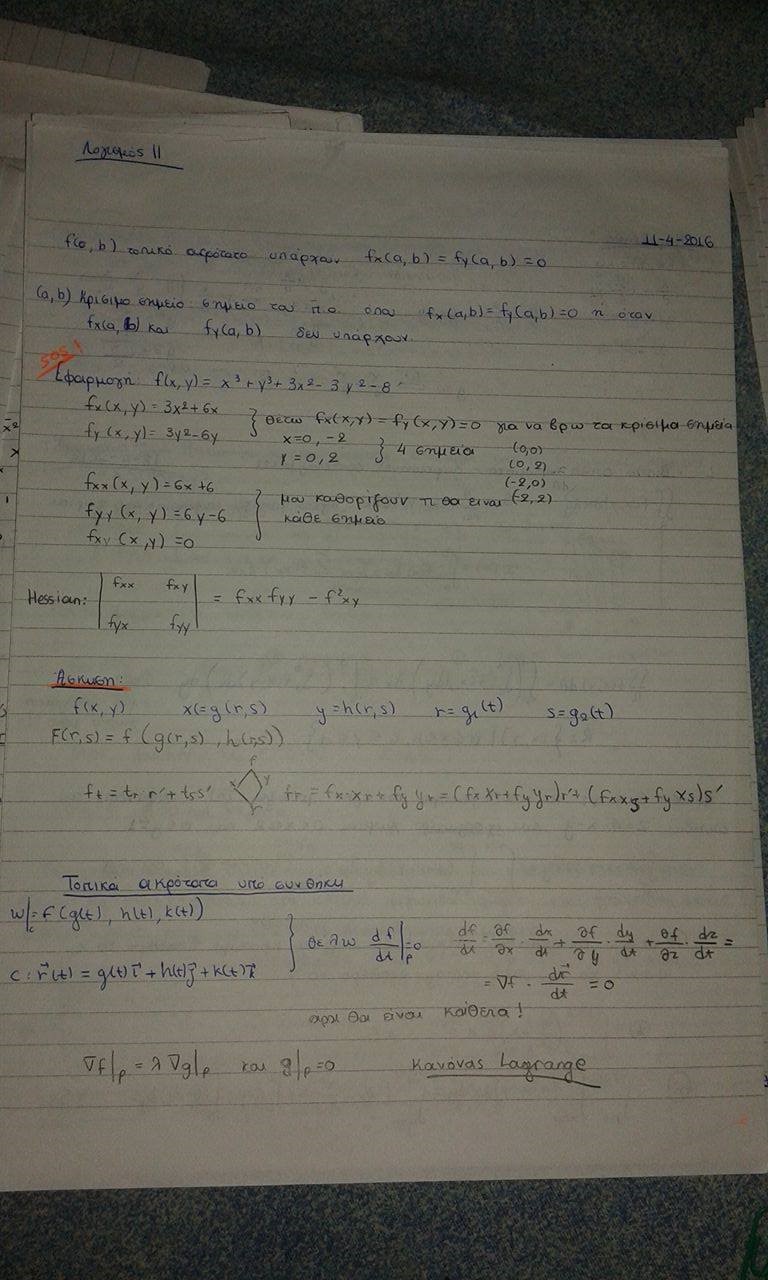 Λογισμός ΙΙ
11-4-2016
f(a,b) τοπικό ακρότατο υπάρχουν fx(a,b) = fy(a,b) = 0
(a,b) κρίσιμο σημείο: σημείο του π.ο. όπου fx(a,b) = fy(a,b) = 0 ή όταν
fx(a,b) και fy(a,b) δεν υπάρχουν.
SOS!
Εφαρμογή: f(x,y) = x³ + y³ + 3x² - 3y² - 8
fx(x,y) = 3x² + 6x
fy(x,y) = 3y² - 6y
} θέτω fx(x,y) = fy(x,y) = 0 για να βρω τα κρίσιμα σημεία
x=0, -2
y=0, 2
} 4 σημεία
(0,0)
(0,2)
(-2,0)
(-2,2)
fxx(x,y) = 6x+6
fyy(x,y) = 6y-6
fxy(x,y) = 0
} μου καθορίζουν τι θα είναι
κάθε σημείο
Hessian: | fxx fxy | = fxx fyy - f²xy
| fyx fyy |
Άσκηση:
f(x,y) x=g(r,s) y=h(r,s) r=g₁(t) s=g₂(t)
F(r,s) = f(g(r,s), h(r,s))
ft = tr r' + ts s' f x y r fr = fx·xr + fy yr = (fx xr + fy yr)r' + (fx xs + fy xs)s'
Τοπικά ακρότατα υπό συνθήκη
w|c = f(g(t), h(t), k(t))
c: r⃗(t) = g(t)i⃗ + h(t)j⃗ + k(t)k⃗
} θέλω df/dt|p = 0 df/dt = ∂f/∂x · dx/dt + ∂f/∂y · dy/dt + ∂f/∂z · dz/dt =
= ∇f · dr⃗/dt = 0
αρα θα είναι κάθετα!
∇f|p = λ ∇g|p και g|p = 0 Κανόνας Lagrange